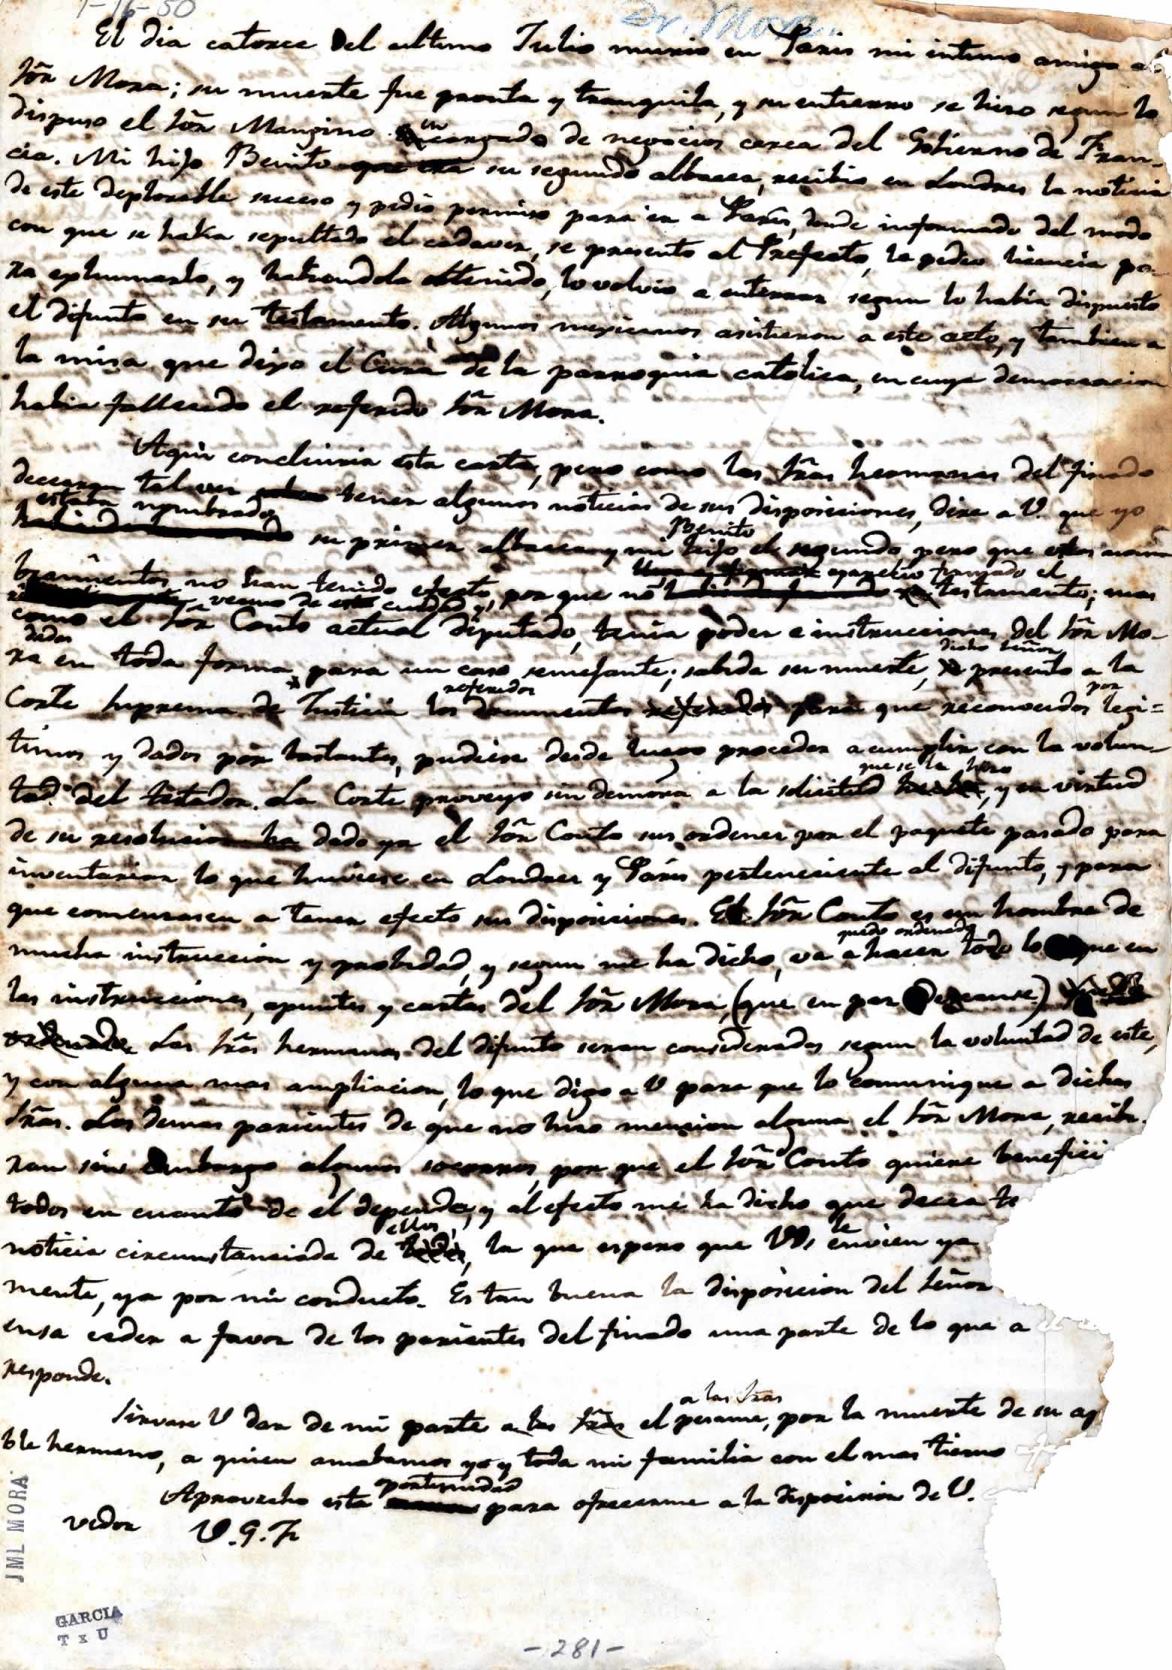 1-16-50
Dr. Mora.
El dia catorce del ultimo Julio murio en Paris mi intimo amigo el
Sõr Mora; su muerte fue pronta y tranquila, y su entierro se hiso segun lo
dispuso el Sõr Mangino encargado de negocios cerca del Gobierno de Fran-
cia. Mi hijo Benito que era su segundo albacea, recibio en Londres la noticia
de este deplorable suceso y pidio permiso para ir a Paris, donde informado del modo
con que se habia sepultado el cadaver, se presento al Prefecto, le pidio licencia pa-
ra exhumarlo, y habiendola obtenido, lo volvio a enterrar segun lo habia dispuesto
el difunto en su testamento. Algunos mexicanos asistieron a este acto, y tambien a
la misa que dijo el Cura de la parroquia catolica, en cuya demarcacion
habia fallecido el referido Sõr Mora.
Aqui concluiria esta carta, pero como las Srãs hermanas del finado
desearan tal vez tener algunas noticias de sus disposiciones, dire a V. que yo
estaba nombrado su primer albacea y mi hijo Benito el segundo, pero que estos nom-
bramientos no han tenido efecto, por que no aparecio firmado el testamento; mas
como el Sõr Couto vecino de esta ciudad y actual diputado, tenia poder e instrucciones del Sõr Mo-
ra en toda forma dados para un caso semejante; sabida su muerte, dicho Señor presento a la
Corte Suprema de Justicia los referidos documentos por que reconocidos legi=
timos y dados por bastantes, pudiese desde luego proceder a cumplir con la volun-
tad del testador. La Corte proveyo sin demora a la solicitud que se la hiso, y en virtud
de su resolucion ha dado ya el Sõr Couto sus ordenes por el paquete pasado para
inventariar lo que huviese en Londres y Paris perteneciente al difunto, y para
que comensasen a tener efecto sus disposiciones. El Sõr Couto es un hombre de
mucha instruccion y probidad, y segun me ha dicho, va a hacer todo lo que quedo ordenado en
las instrucciones, apuntes y cartas del Sõr Mora, (que en paz descanse)
ordenado. Las Srãs hermanas del difunto seran consideradas segun la voluntad de este,
y con alguna mas ampliacion, lo que digo a V para que lo comunique a dichas
Srãs. Los demas parientes de que no hiso mencion alguna el Sõr Mora, recibi-
ran sin embargo algunos socorros, por que el Sõr Couto quiere benefici
todos en cuanto de el dependa, y al efecto me ha dicho que decea te
noticia circunstanciada de ellos, la que espero que VVs le envien ya
mente, ya por mi conducto. Es tan buena la disposicion del Señor
ensa ceder a favor de los parientes del finado una parte de lo que a
responde.
Sirvase V dar de mi parte a las Srãs el pesame, por la muerte de su ap
ble hermano, a quien amabamos yo y toda mi familia con el mas tierno
Aprovecho esta oportunidad para ofrecerme a la disposicion de V.
vidor V. G. F.
JML MORA
GARCIA
T x U
-281-